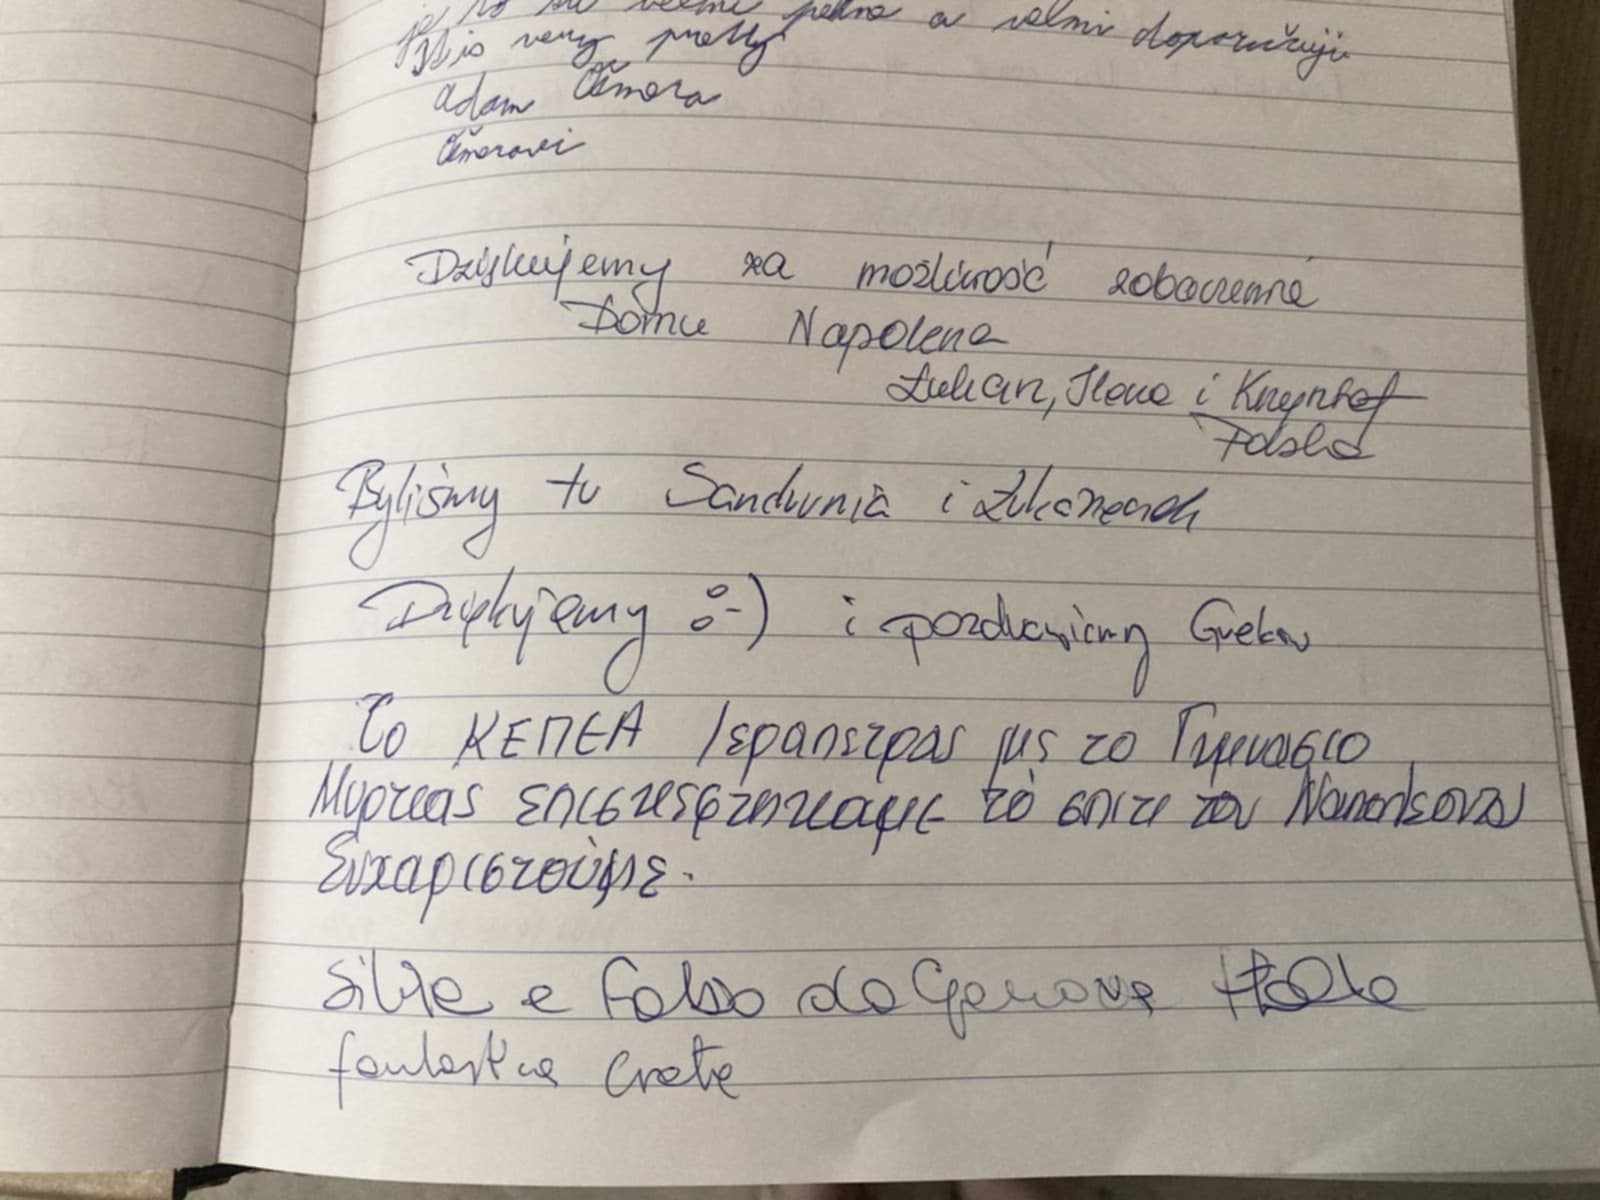 je to tu velmi pekne a velmi doporučuji
It is very pretty
Adam Čmora
Čmorovi
Dziękujemy za możliwość zobaczenia
Domu Napolena
Łukan, Ilona i Krzysztof
Polska
Byliśmy tu Sandunia i
Dziękujemy :-) i pozdrawiamy Greków
Το ΚΕΠΕΑ Ιεραπετρας με το Γυμνασιο
Μυρτιάς επισκεφτηκαμε το σπιτι του Ναπολεοντα
Ευχαριστούμε.
Silvia e Fabio da Genova Italia
fantastica Creta